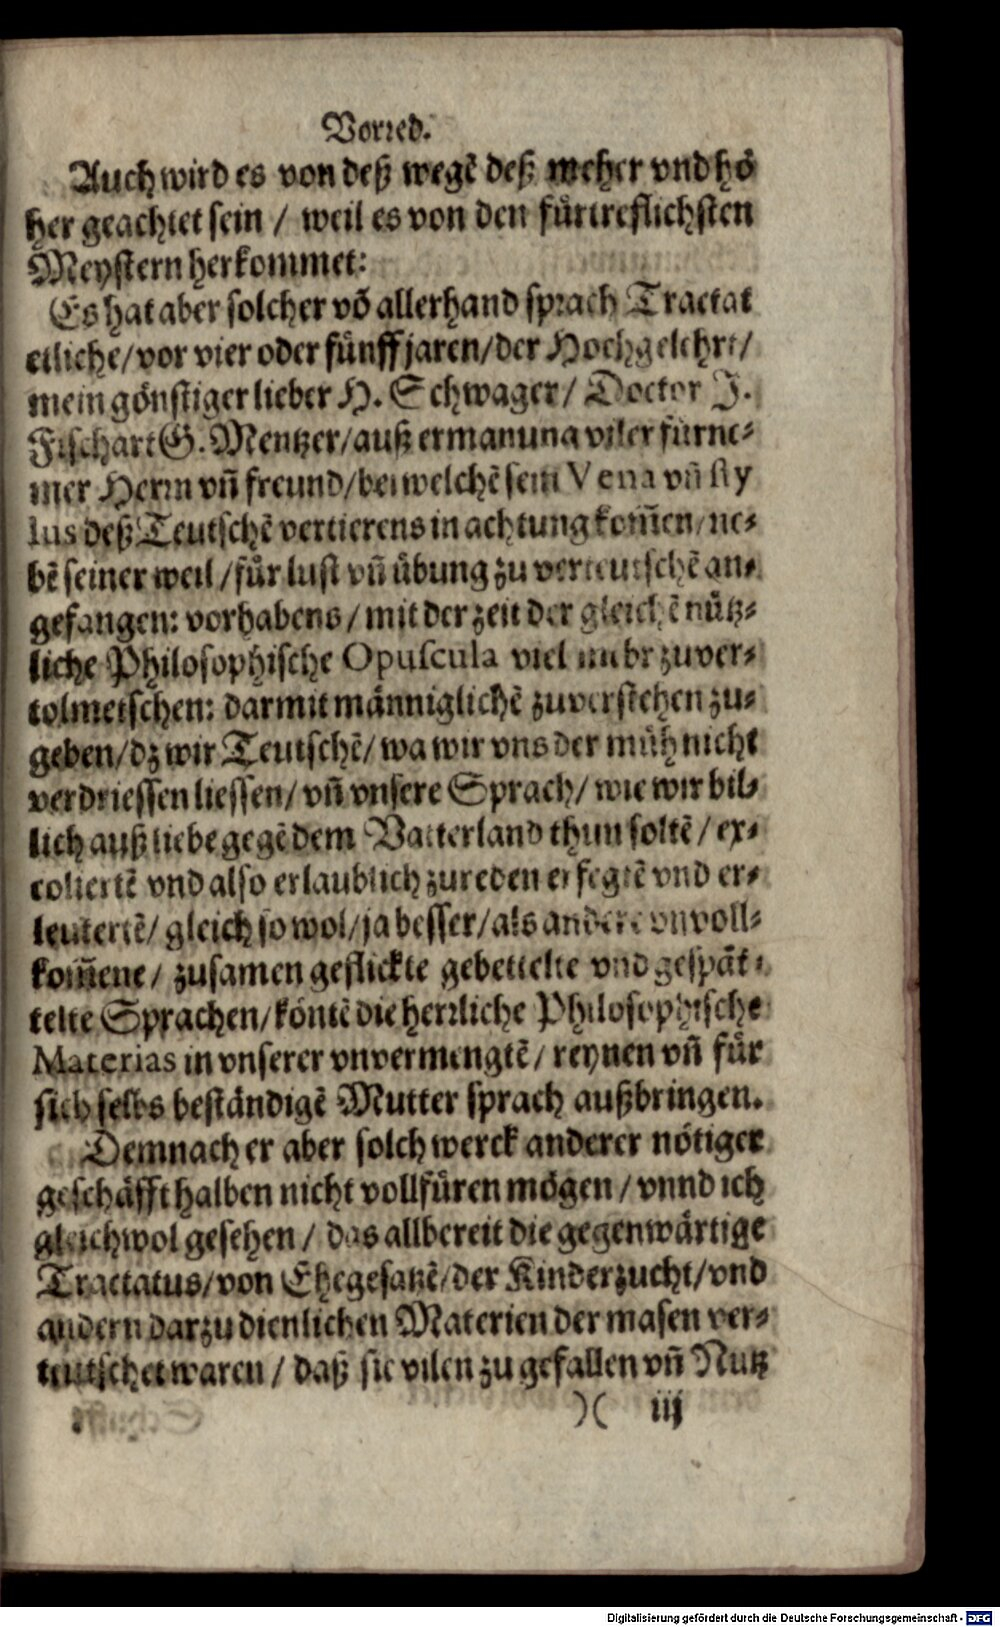 Vorred.
Auch wird es von deß wegẽ deß meher vnd hö
her geachtet sein / weil es von den fürtreflichsten
Meystern herkommet:
Es hat aber solcher võ allerhand sprach Tractat
etliche/vor vier oder fünff jaren/der Hochgelehrt/
mein gönstiger lieber H. Schwager/ Doctor J.
Fischart G. Mentzer/auß ermanung viler fürne-
mer Herrn vñ freund/bei welchẽ sein Vena vñ sty
lus deß Teutschẽ vertierens in achtung kom̃en/ne-
bẽ seiner weil /für lust vñ übung zu verteutschẽ an-
gefangen: vorhabens / mit der zeit der gleichẽ nütz-
liche Philosophische Opuscula viel mehr zuver-
tolmetschen: darmit männiglichẽ zuverstehen zu-
geben/dz wir Teutschẽ/ wa wir vns der müh nicht
verdriessen liessen/ vñ vnsere Sprach/ wie wir bil-
lich auß liebe gegẽ dem Vatterland thun soltẽ / ex-
coliertẽ vnd also erlaublich zureden erfegtẽ vnd er-
leutertẽ/ gleich so wol/ja besser/als andere vnvoll-
kom̃ene/ zusamen geflickte gebettelte vnd gespät-
telte Sprachen/köntẽ die herrliche Philosophische
Materias in vnserer vnvermengtẽ / reynen vñ für
sich selbs beständigẽ Mutter sprach außbringen.
Demnach er aber solch werck anderer nötiger
geschäfft halben nicht vollfüren mögen / vnnd ich
gleichwol gesehen / das allbereit die gegenwärtige
Tractatus/von Ehegesatzẽ/der Kinderzucht/vnd
andern darzu dienlichen Materien der masen ver-
teutschet waren / daß sie vilen zu gefallen vñ Nutz
)( iij
Digitalisierung gefördert durch die Deutsche Forschungsgemeinschaft - DFG